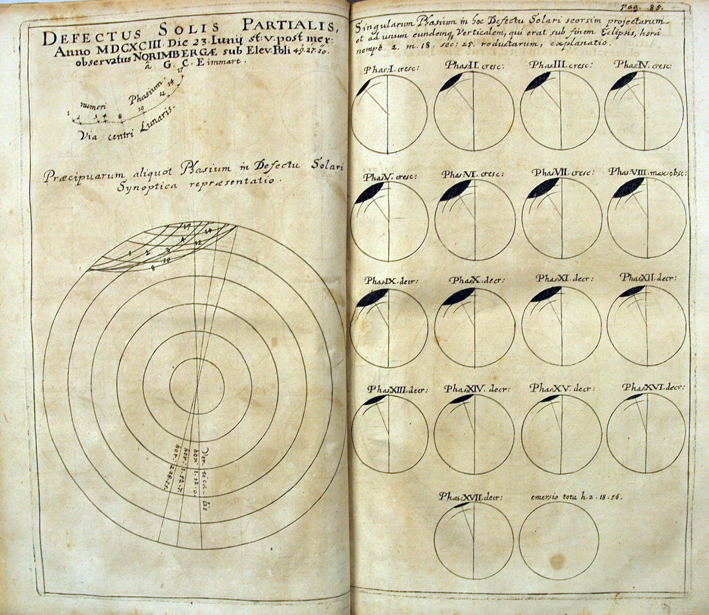 DEFECTUS SOLIS PARTIALIS,
Anno MDCXCIII. Die 23. Iunij st. v. post mer:
observatus NORIMBERGÆ sub Elev. Poli 49. 27. 10.
à G. C. Eimmart.
numeri Phasium.
Via centri Lunaris.
Præcipuarum aliquot Phasium in Defectu Solari
Synoptica repræsentatio.
Verticales
Pag. 85.
Singularum Phasium in hoc Defectu Solari seorsim projectarum
et ad unum eundemq, Verticalem, qui erat sub finem Eclipsis, horâ
nempè 2. m. 18. sec: 25. reductarum, explanatio.
Phas. I. cresc: Phas. II. cresc: Phas. III. cresc: Phas. IV. cresc:
Phas. V. cresc: Phas. VI. cresc: Phas. VII. cresc: Phas. VIII. max: obsc:
Phas. IX. decr: Phas. X. decr: Phas. XI. decr: Phas. XII. decr:
Phas. XIII. decr: Phas. XIV. decr: Phas. XV. decr: Phas. XVI. decr:
Phas. XVII. decr: emersio tota h. 2. 18. 56.